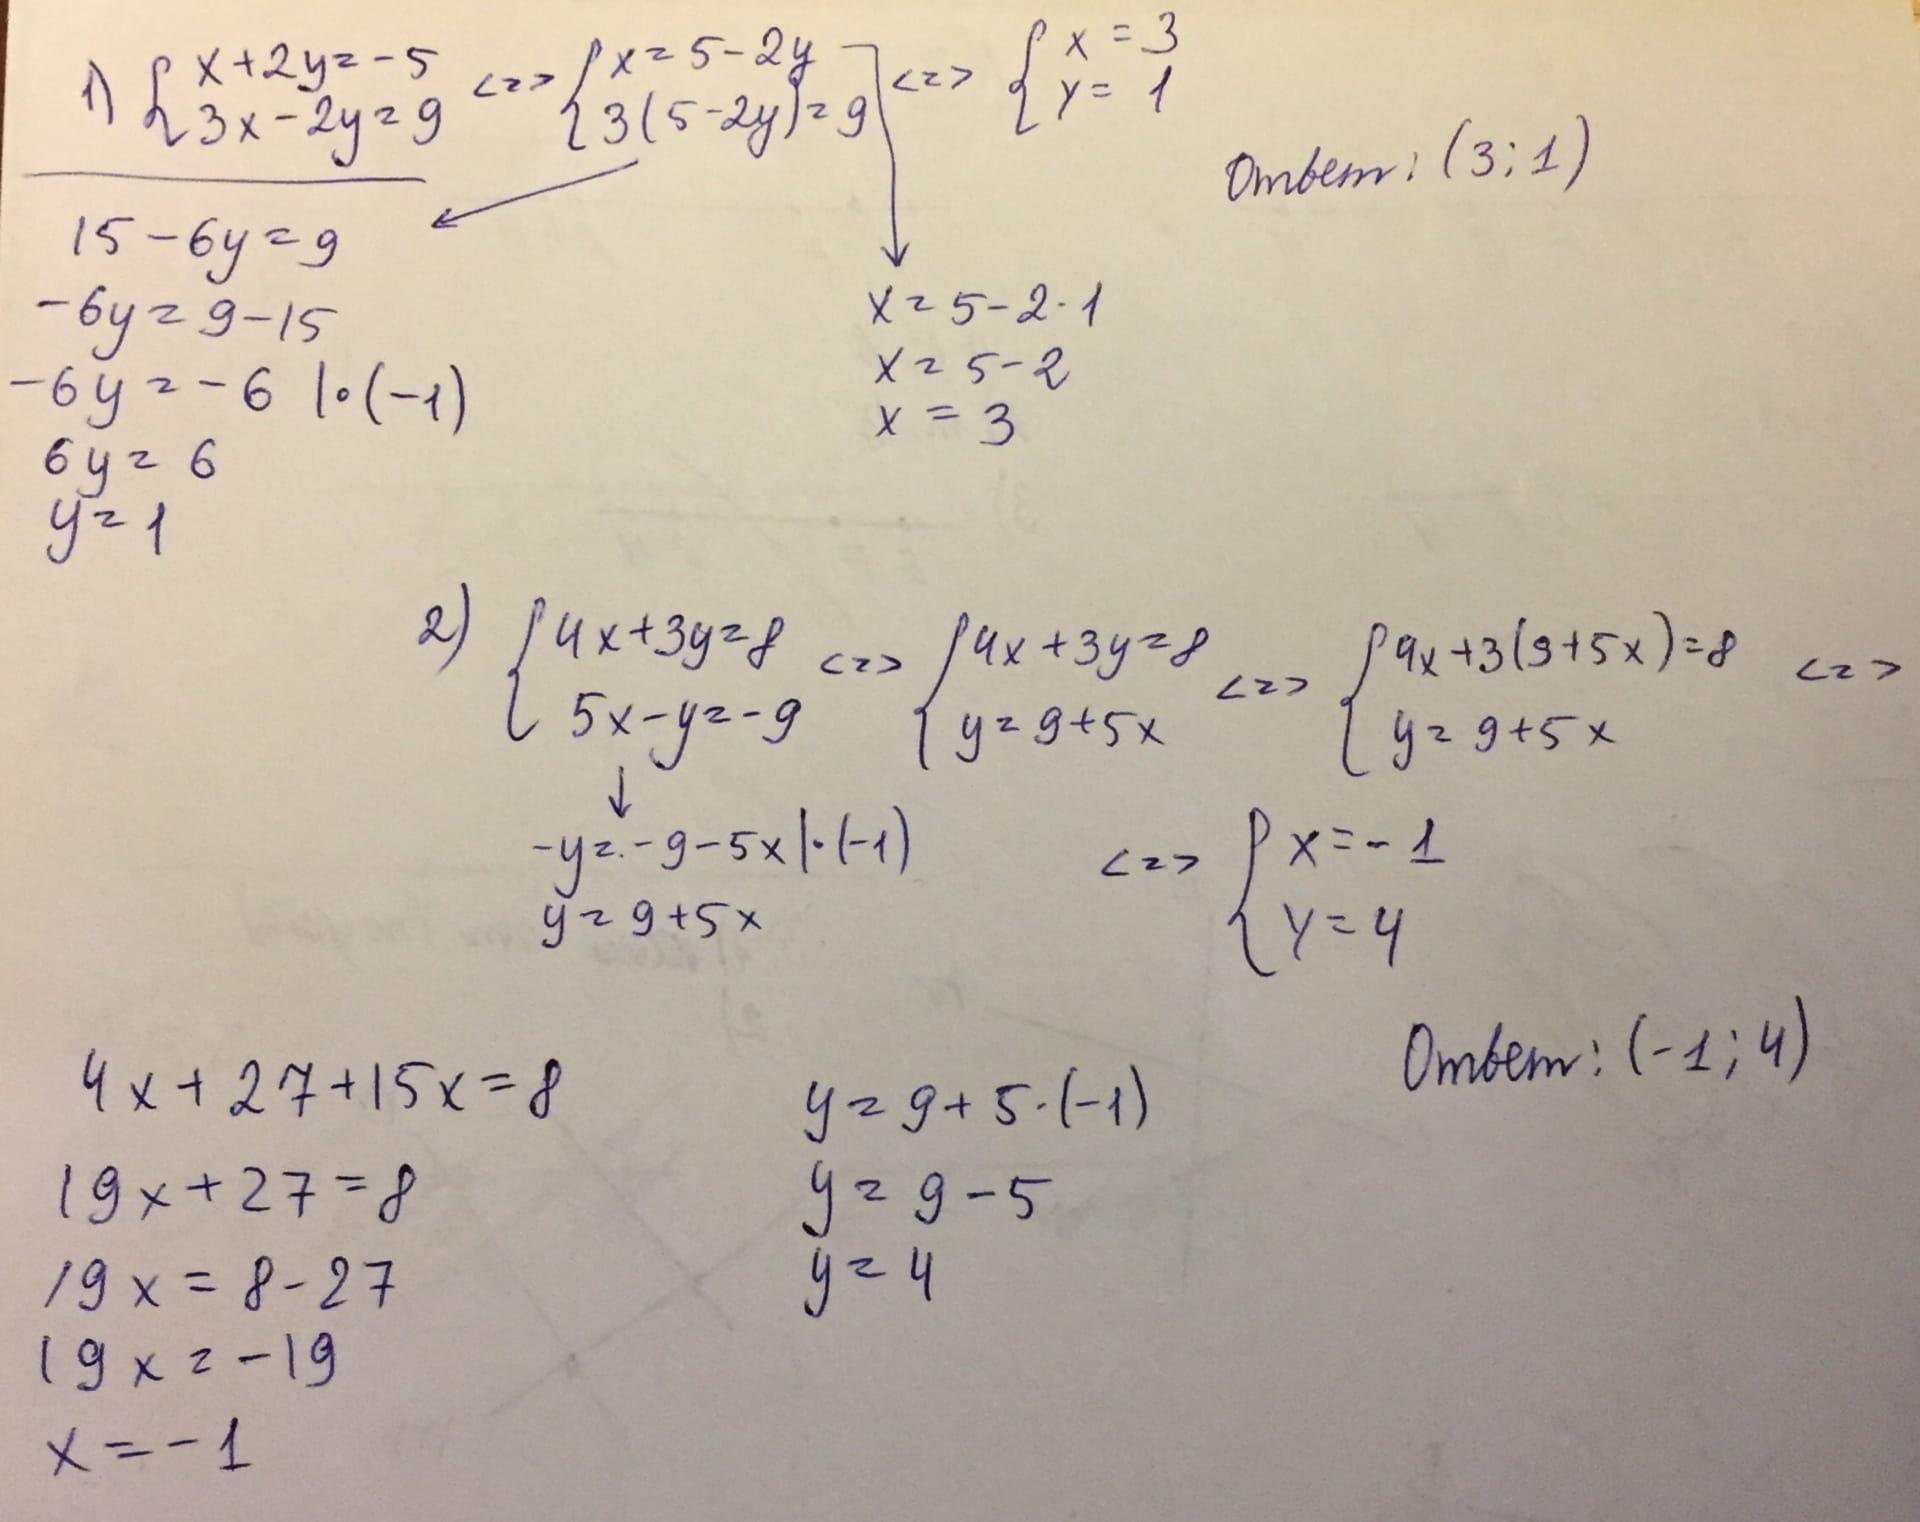 1) { x+2y=-5 <=> { x=5-2y <=> { x=3
3x-2y=9 3(5-2y)=9 y=1
Ответ: (3;1)
15-6y=9
-6y=9-15
-6y=-6 |·(-1)
6y=6
y=1
x=5-2·1
x=5-2
x=3
2) { 4x+3y=8 <=> { 4x+3y=8 <=> { 4x+3(9+5x)=8 <=>
5x-y=-9 y=9+5x y=9+5x
-y=-9-5x |·(-1)
y=9+5x
<=> { x=-1
y=4
Ответ: (-1;4)
4x+27+15x=8
19x+27=8
19x=8-27
19x=-19
x=-1
y=9+5·(-1)
y=9-5
y=4